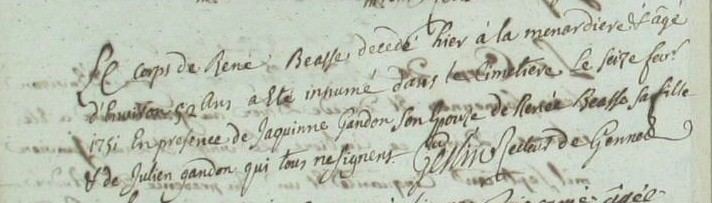 Le corps de René Beasse decedé hier à la menardiere & âgé
d'Environ 52 Ans a Eté inhumé dans le Cimetiere Le seize fevr
1751 En presence de Jaquinne Gandon son Epouze de Renée Beasse sa fille
& de Julien gandon qui tous ne signent. Recteur de Gennes